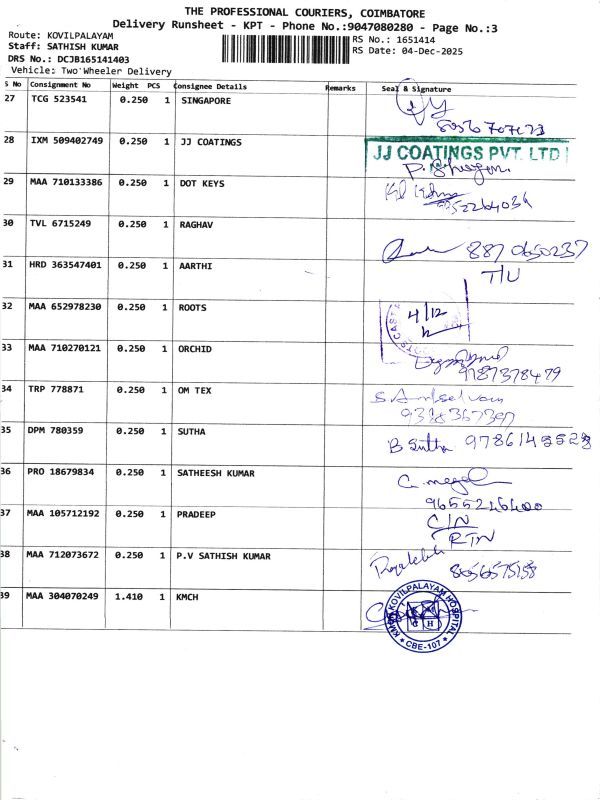 THE PROFESSIONAL COURIERS, COIMBATORE
Delivery Runsheet - KPT - Phone No.:9047080280 - Page No.:3
Route: KOVILPALAYAM
RS No.: 1651414
Staff: SATHISH KUMAR
RS Date: 04-Dec-2025
DRS No.: DCJB165141403
Vehicle: Two Wheeler Delivery
S No Consignment No Weight PCS Consignee Details Remarks Seal & Signature
27 TCG 523541 0.250 1 SINGAPORE
28 IXM 509402749 0.250 1 JJ COATINGS
JJ COATINGS PVT. LTD
29 MAA 710133386 0.250 1 DOT KEYS
30 TVL 6715249 0.250 1 RAGHAV
8870650237
31 HRD 363547401 0.250 1 AARTHI T/U
32 MAA 652978230 0.250 1 ROOTS 4/12
33 MAA 710270121 0.250 1 ORCHID
9787378479
34 TRP 778871 0.250 1 OM TEX
35 DPM 780359 0.250 1 SUTHA B Sutha
36 PRO 18679834 0.250 1 SATHEESH KUMAR
9655246400
37 MAA 105712192 0.250 1 PRADEEP C/N
RTN
38 MAA 712073672 0.250 1 P.V SATHISH KUMAR
39 MAA 304070249 1.410 1 KMCH
KOVILPALAYAM HOSPITAL
CBE-107